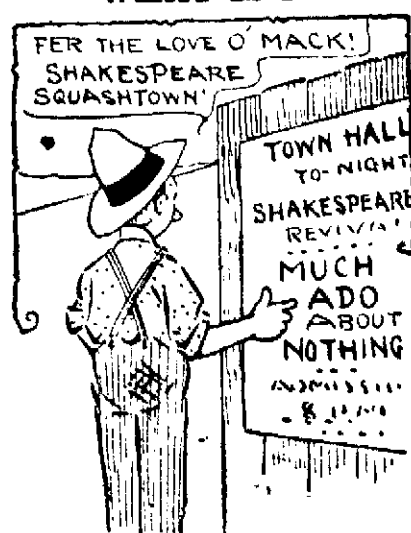 FER THE LOVE O' MACK!
SHAKESPEARE
SQUASHTOWN!
TOWN HALL
TO-NIGHT
SHAKESPEARE
REVIVAL
MUCH
ADO
ABOUT
NOTHING